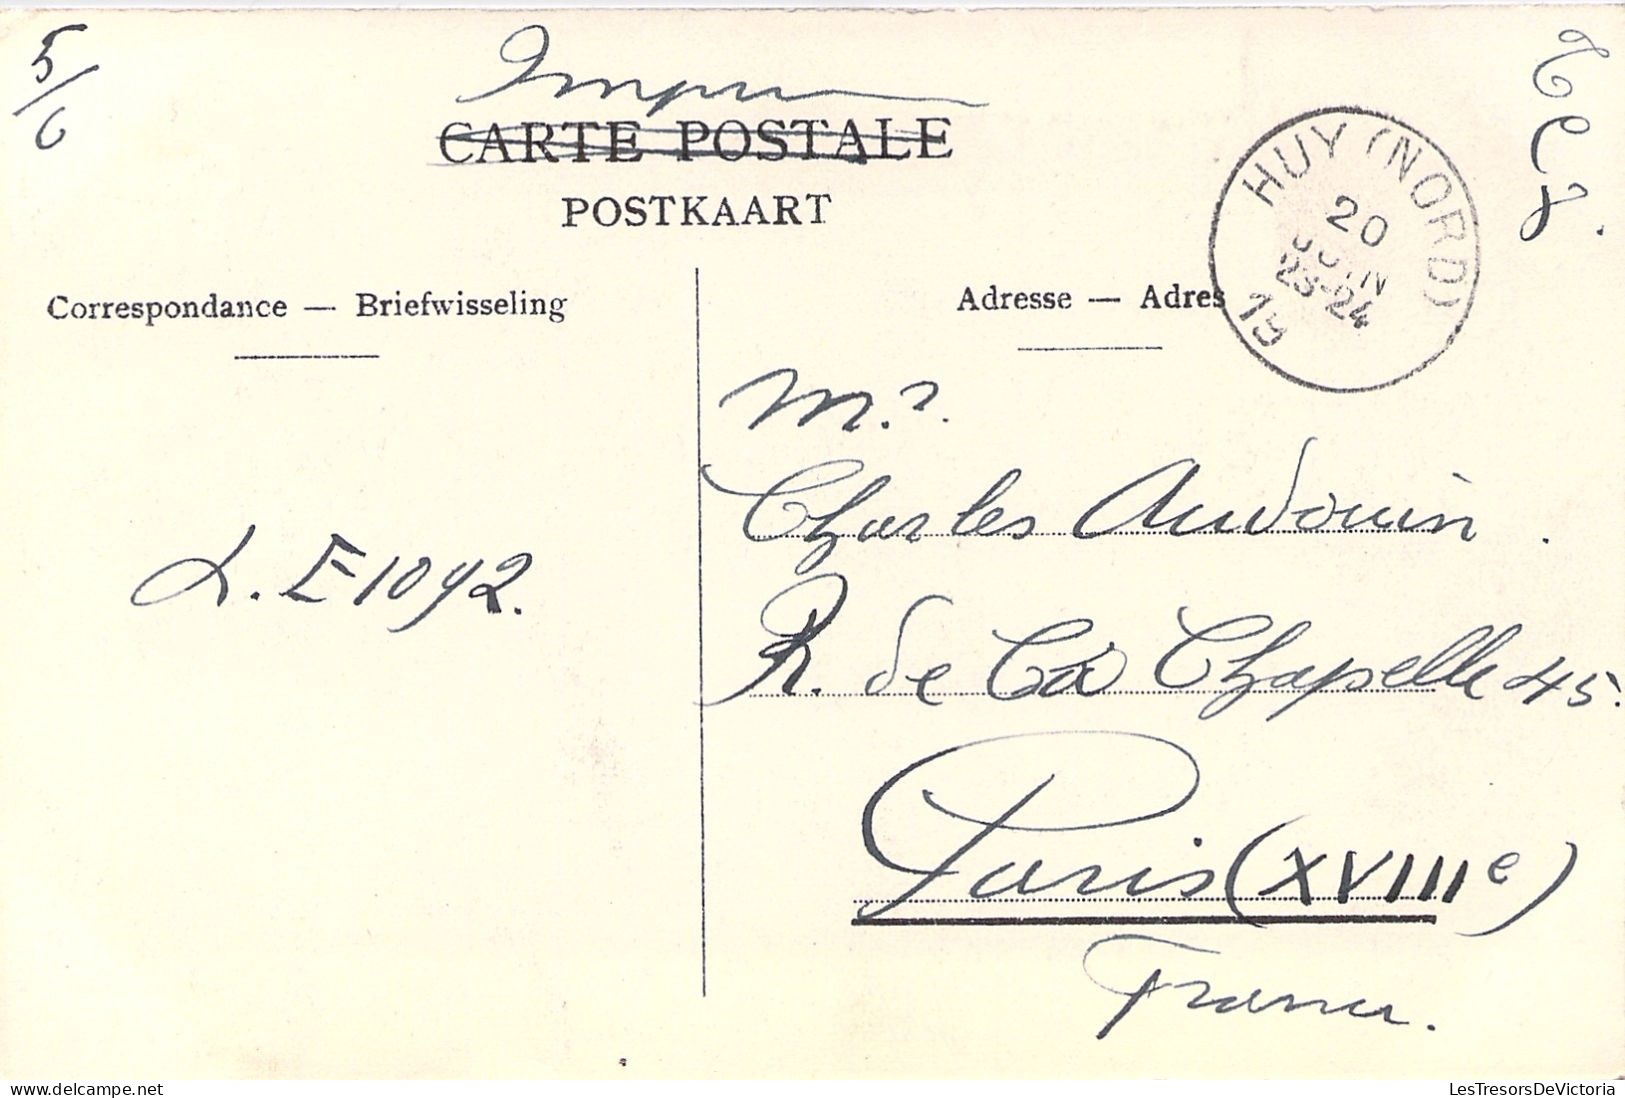 5/6
CARTE POSTALE
POSTKAART
T C 8.
HUY (NORD)
20
JUIN
23-24
19
Correspondance — Briefwisseling
Adresse — Adres
M.r
Charles Audouin.
R. de La Chapelle 45.
L. E 1092.
Paris (XVIIIe)
France.
delcampe.net
LesTresorsDeVictoria